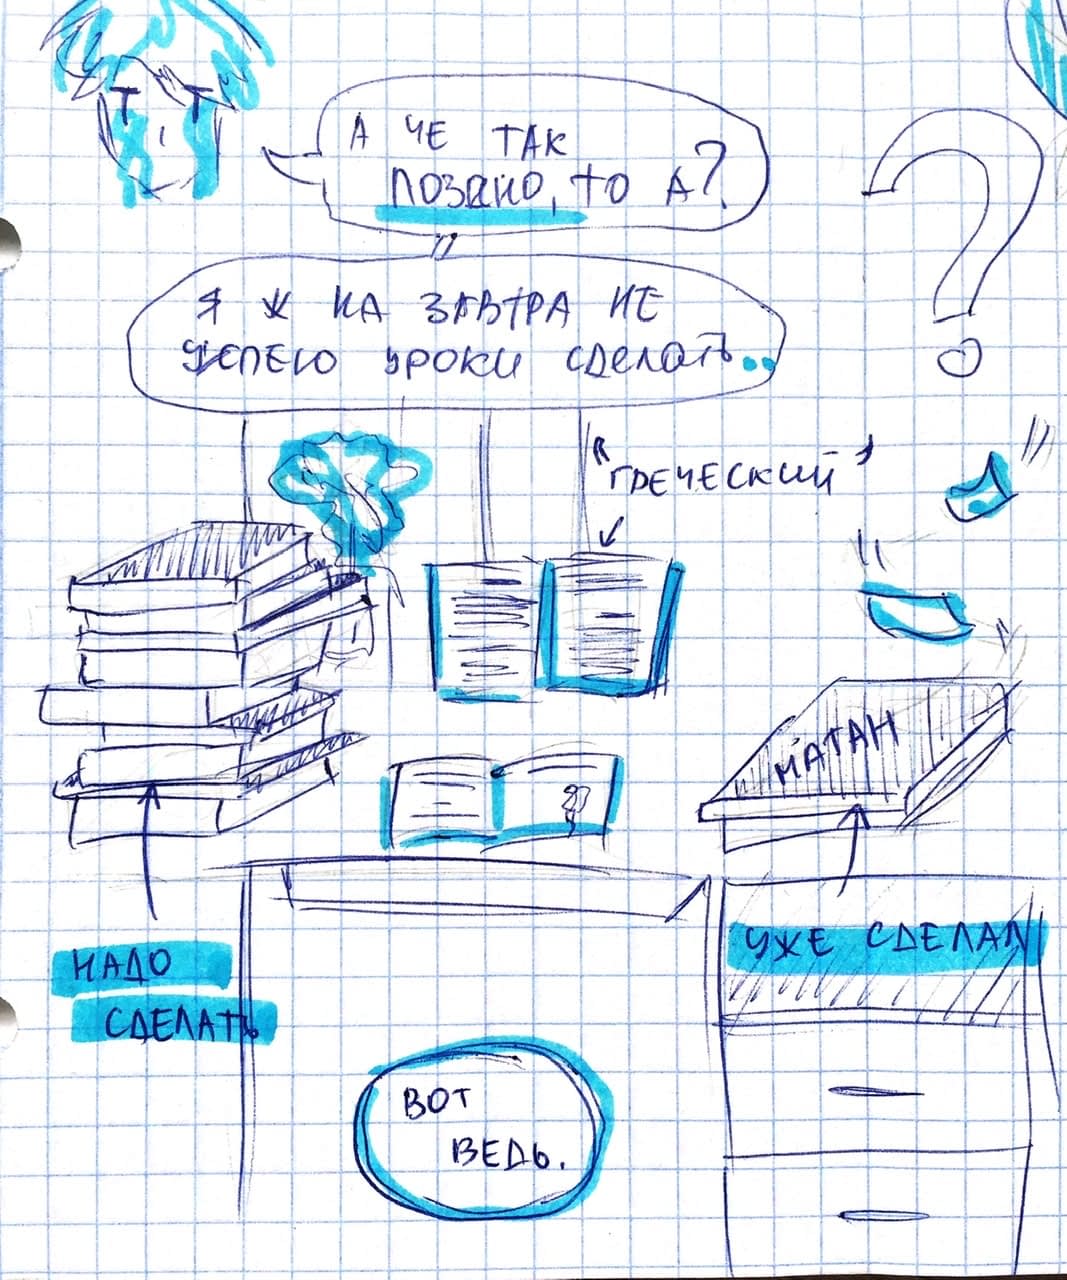 А ЧЕ ТАК
ПОЗДНО, ТО А?
Я Ж НА ЗАВТРА НЕ
УСПЕЮ УРОКИ СДЕЛАТЬ..
"ГРЕЧЕСКИЙ"
МАТАН
НАДО
СДЕЛАТЬ
УЖЕ СДЕЛАЛ
ВОТ
ВЕДЬ.